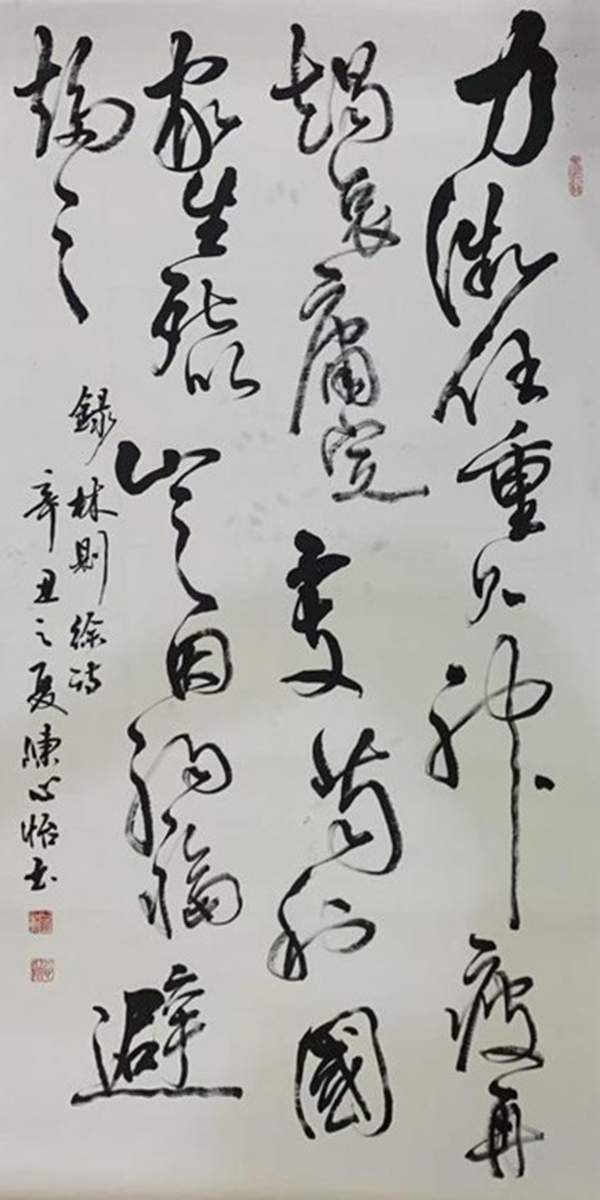 力微任重久神疲再
竭衰庸定不支苟利國
家生死以豈因禍福避
趨之
錄林則徐詩
辛丑之夏陳心怡书